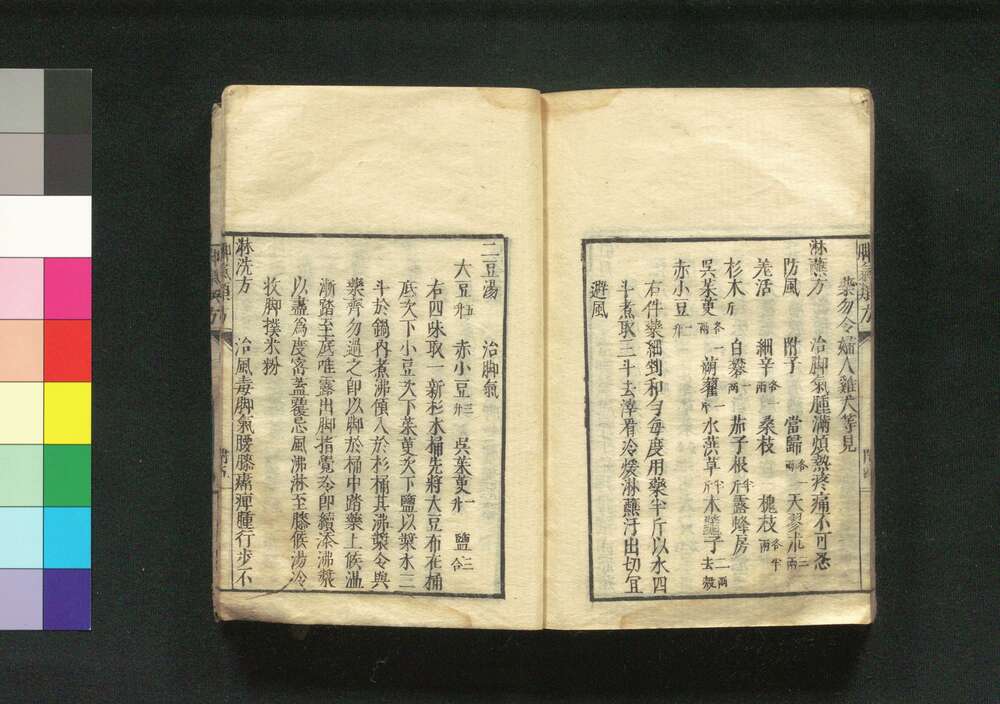 藥勿令婦人雞犬等見
淋蘸方 治脚氣腫滿煩熱疼痛不可忍
防風 附子 當歸各一兩 天蓼木二兩
羗活 細辛各一兩 桑枝 槐枝各半兩
杉木斤 白礬一兩 茄子根半斤 露蜂房
吳茱萸各一兩 蒴藋一斤 水葓草半斤 木鱉子二兩去殼
赤小豆一升
右件藥細剉和勻每度用藥半斤以水四
斗煮取三斗去滓看冷煖淋蘸汗出切宜
避風
二豆湯 治脚氣
大豆五升 赤小豆三升 吳茱萸一升 鹽三合
右四味取一新杉木桶先將大豆布在桶
底次下小豆次下茱萸次下鹽以漿水三
斗於鍋內煮沸傾入於杉桶其沸漿令與
藥齊勿過之即以脚於桶中踏藥上候溫
漸踏至底唯露出脚指覺冷即續添沸漿
以盡爲度密蓋覆忌風沸淋至膝候湯冷
收脚撲米粉
淋洗方 治風毒脚氣腰膝𤸷痺腫行步不